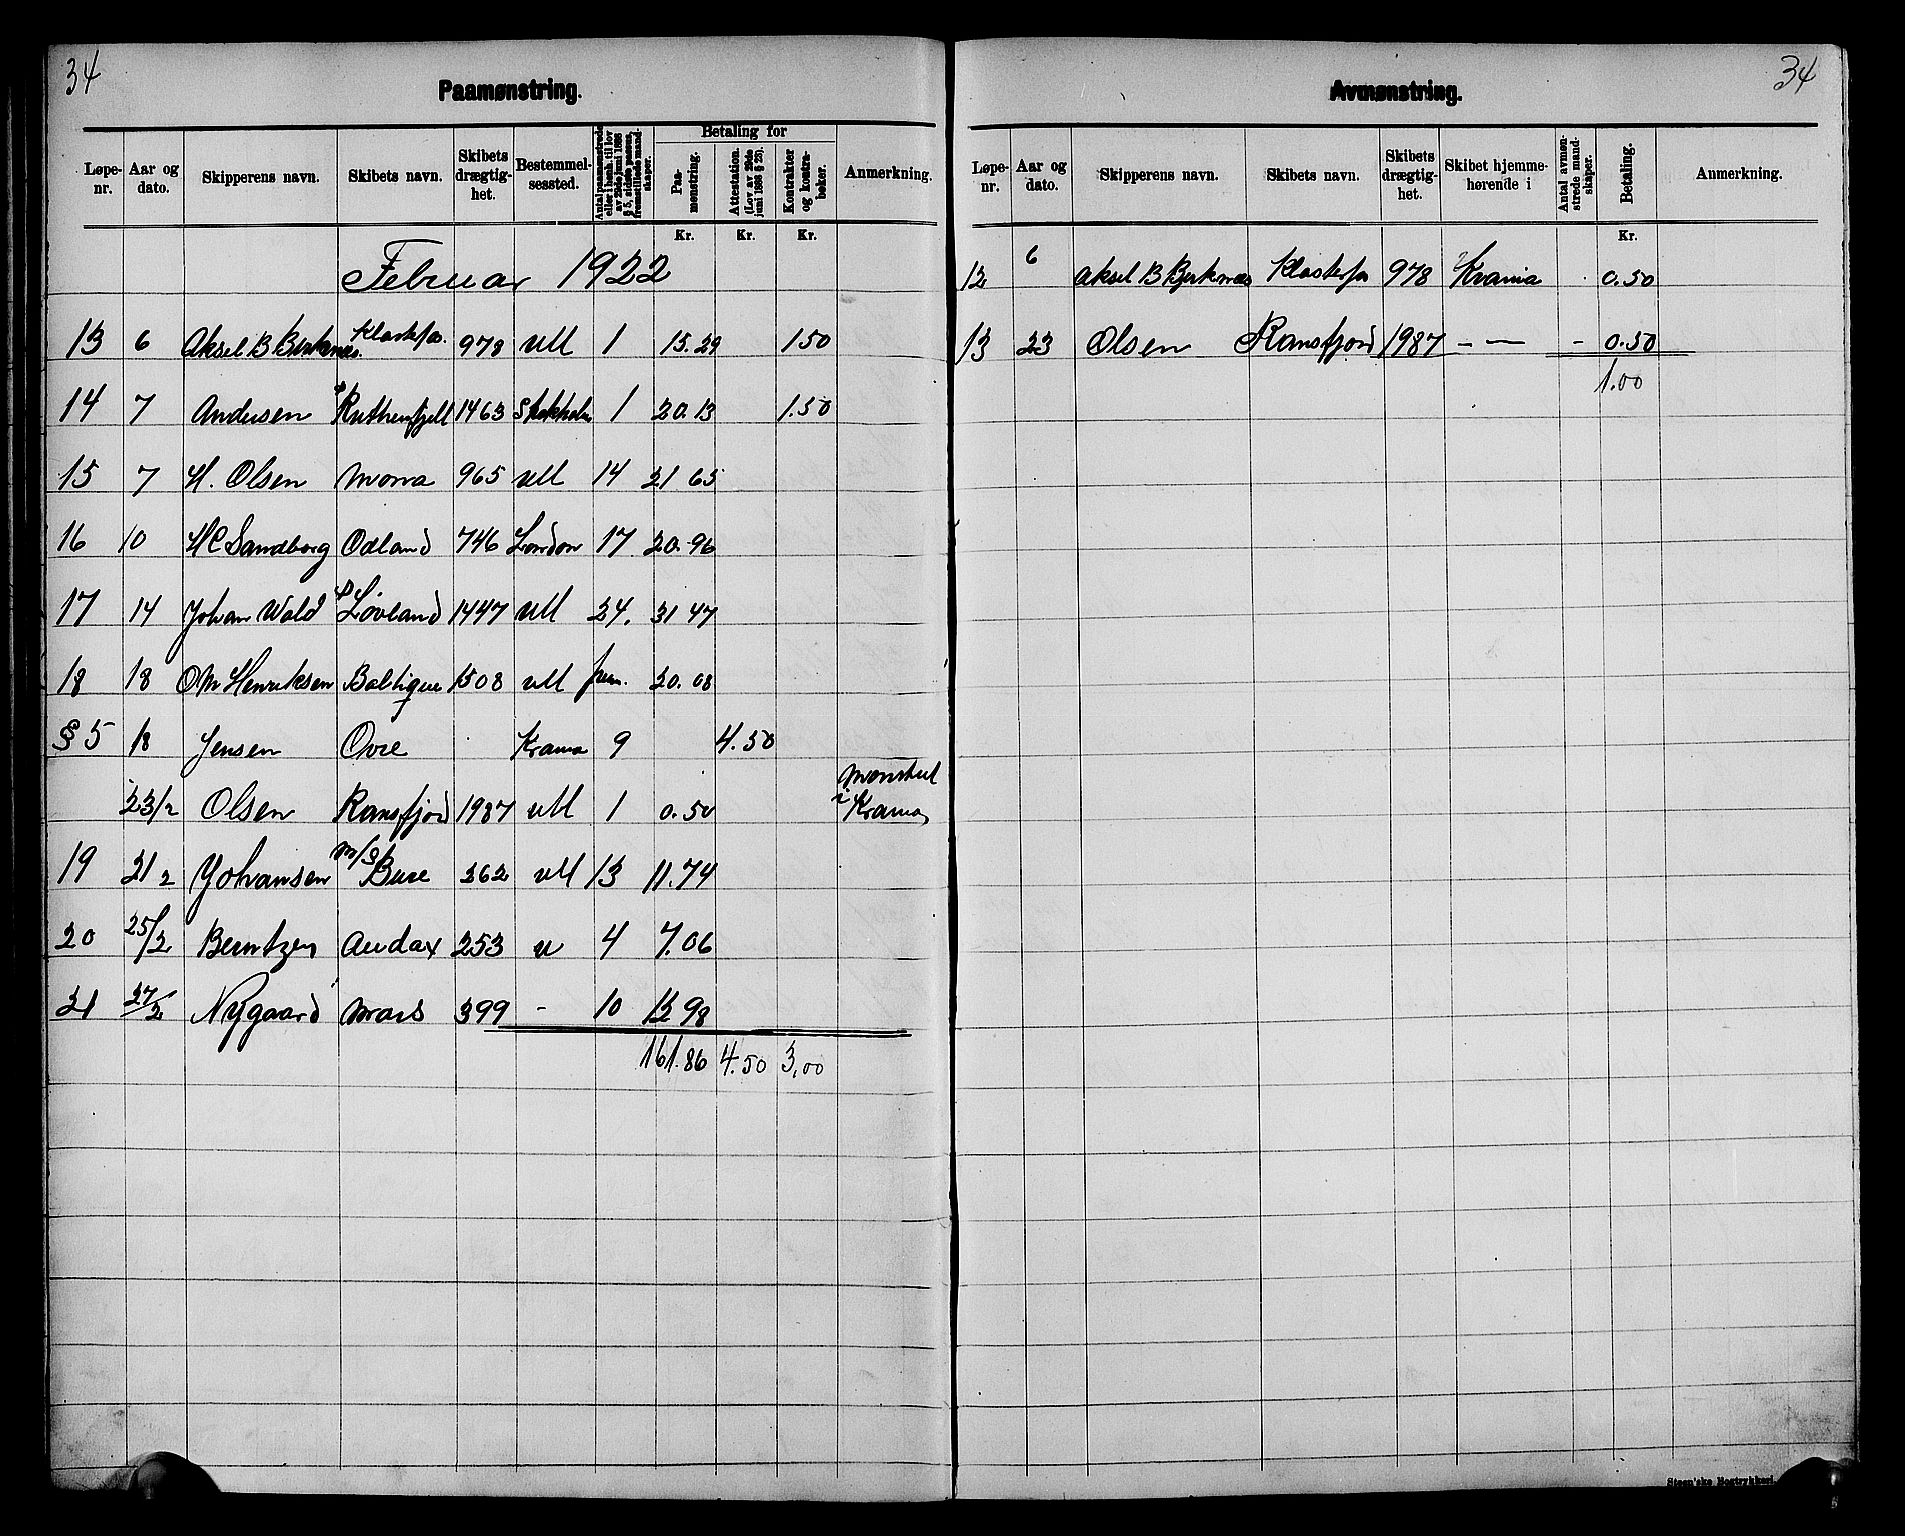 34
Paamønstring.
Løpe-nr. Aar og dato. Skipperens navn. Skibets navn. Skibets drægtig-het. Bestemmel-sessted. Antal paamønstrede eller i henh. til lov av 29de juni 1888 § 5, sidste passus, fremstillede mand-skaper. Betaling for Paa-mønstring. Attestation. (Lov av 29de juni 1888 § 23). Kontrakter og kontra-bøker. Anmerkning.
Kr. Kr. Kr.
Februar 1922
13 6 Aksel B Berknæs Klosterfos. 978 utl 1 15.29 1.50
14 7 Andersen Ruthenfjell 1463 Stokholm 1 20.13 1.50
15 7 H. Olsen Morna 965 utl 14 21 65
16 10 H C Sandborg Odland 746 London 17 20.96
17 14 Johan Wold Løvland 1447 utl 24. 31 47
18 18 O M Henriksen Baltique 1508 utl 20.08
§ 5 18 Jensen Ovre Krania 9 4.50
23/2 Olsen Ransfjord 1987 utl 1 0.50 Mønstret i Krania
19 21 2 Johansen m/s Bure 262 utl 13 11.74
20 25/2 Berntzen Audax 253 u 4 7.06
21 27/2 Nygaard Mars 399 - 10 12 98
161.86 4.50 3,00
34
Avmønstring.
Løpe-nr. Aar og dato. Skipperens navn. Skibets navn. Skibets drægtig-het. Skibet hjemme-hørende i Antal avmøn-strede mand-skaper. Betaling. Anmerkning.
Kr.
12 6 Aksel B Berknæs Klosterfos 978 Krania 0.50
13 23 Olsen Ransfjord 1987 - - - 0.50
1.00
Steen'ske Bogtrykkeri.